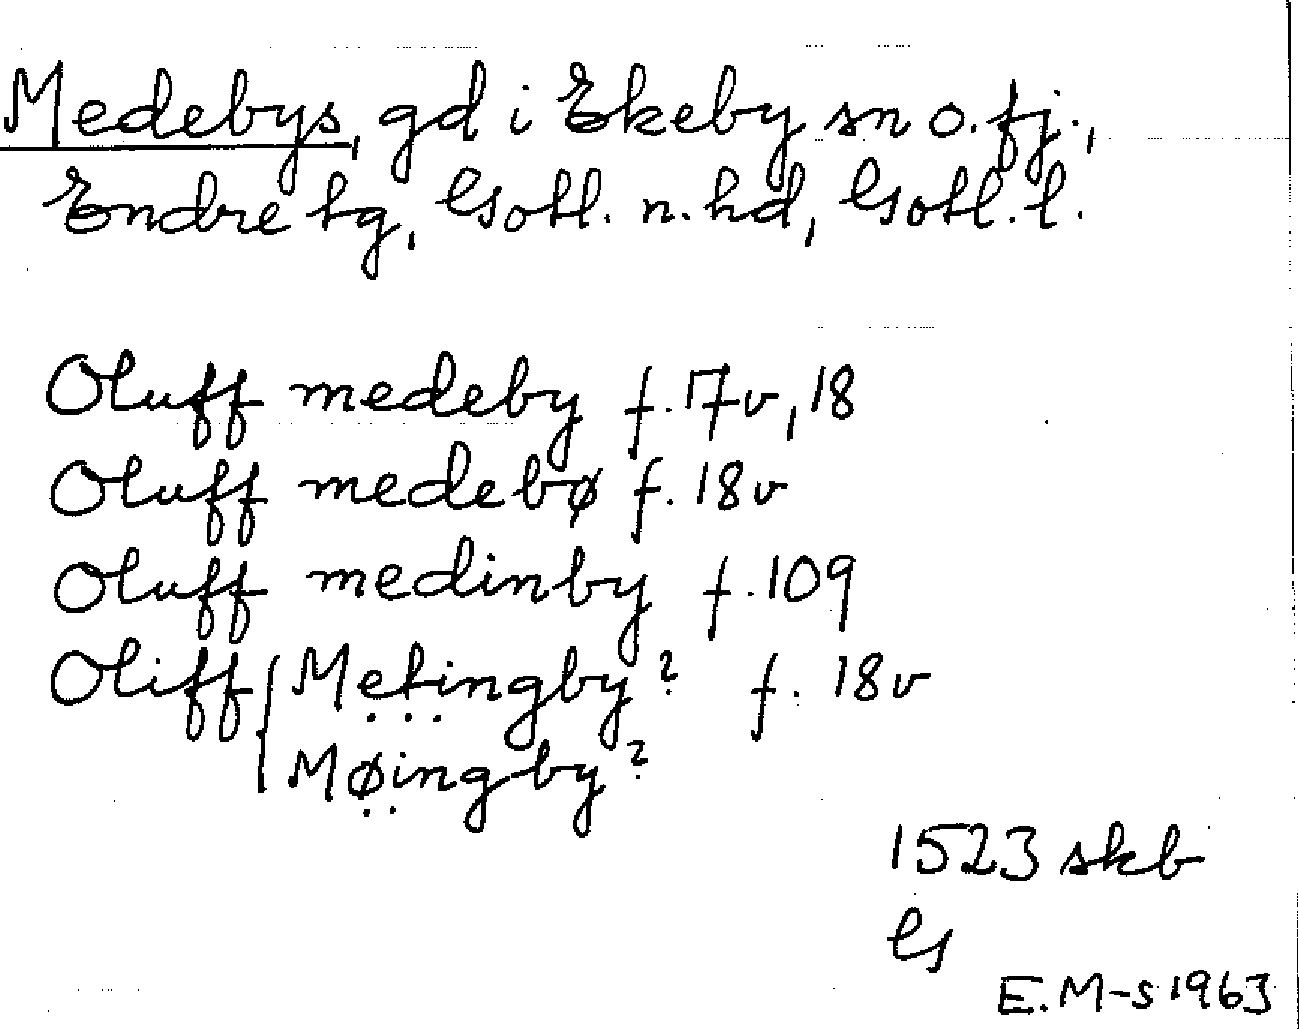 Medebys, gd i Ekeby sn o. fj.,
Endre tg, Gotl. n. hd, Gotl. l.
Oluff medeby f. 17v, 18
Oluff medebø f. 18v
Oluff medinby f. 109
Oliff { Mẹṭịngby? f. 18v
Mø̣ịngby?
1523 skb
G
E. M-s 1963